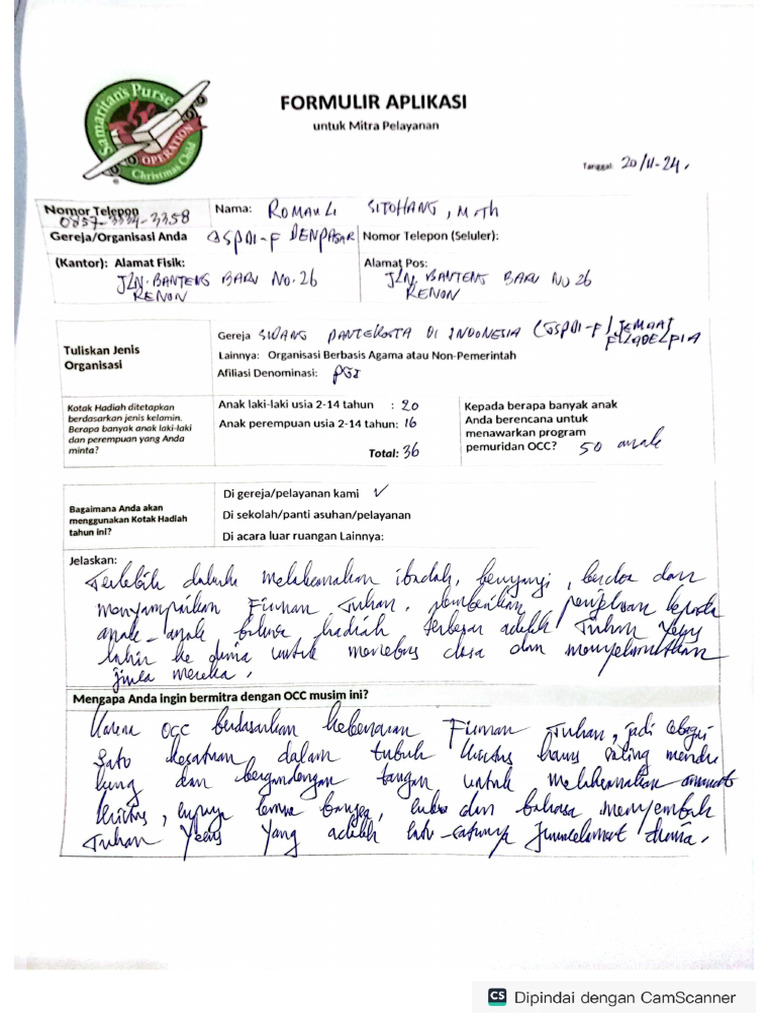 Samaritan's Purse
OPERATION
Christmas Child
FORMULIR APLIKASI
untuk Mitra Pelayanan
Tanggal: 20/11-24.
Nomor Telepon
0857-3334-3358
Nama: ROMAULI SITOHANG, M.Th
Gereja/Organisasi Anda GSPDI-F DENPASAR Nomor Telepon (Seluler):
(Kantor): Alamat Fisik:
JLN. BANTENG BARU No. 26
RENON
Alamat Pos:
JLN. BANTENG BARU NO 26
RENON
Tuliskan Jenis
Organisasi
Gereja SIDANG PANTEKOSTA DI INDONESIA (GSPDI-F) JEMAAT
FILADELPIA
Lainnya: Organisasi Berbasis Agama atau Non-Pemerintah
Afiliasi Denominasi: PGI
Kotak Hadiah ditetapkan
berdasarkan jenis kelamin.
Berapa banyak anak laki-laki
dan perempuan yang Anda
minta?
Anak laki-laki usia 2-14 tahun : 20
Anak perempuan usia 2-14 tahun: 16
Total: 36
Kepada berapa banyak anak
Anda berencana untuk
menawarkan program
pemuridan OCC? 50 anak
Bagaimana Anda akan
menggunakan Kotak Hadiah
tahun ini?
Di gereja/pelayanan kami ✓
Di sekolah/panti asuhan/pelayanan
Di acara luar ruangan Lainnya:
Jelaskan:
Terlebih dahulu melaksanakan ibadah, bernyanyi, berdoa dan
menyampaikan Firman Tuhan, pemberian penjelasan kepada
anak-anak bahwa hadiah terbesar adalah Tuhan Yesus
lahir ke dunia untuk menebus dosa dan menyelamatkan
jiwa mereka.
Mengapa Anda ingin bermitra dengan OCC musim ini?
Karena OCC berdasarkan kebenaran Firman Tuhan, jadi sebagai
satu kesatuan dalam tubuh Kristus harus saling mendu
kung dan bergandengan tangan untuk melaksanakan amanat
Kristus, supaya semua bangsa, suku dan bahasa menyembah
Tuhan Yesus yang adalah satu-satunya Juruselamat dunia.
CS Dipindai dengan CamScanner